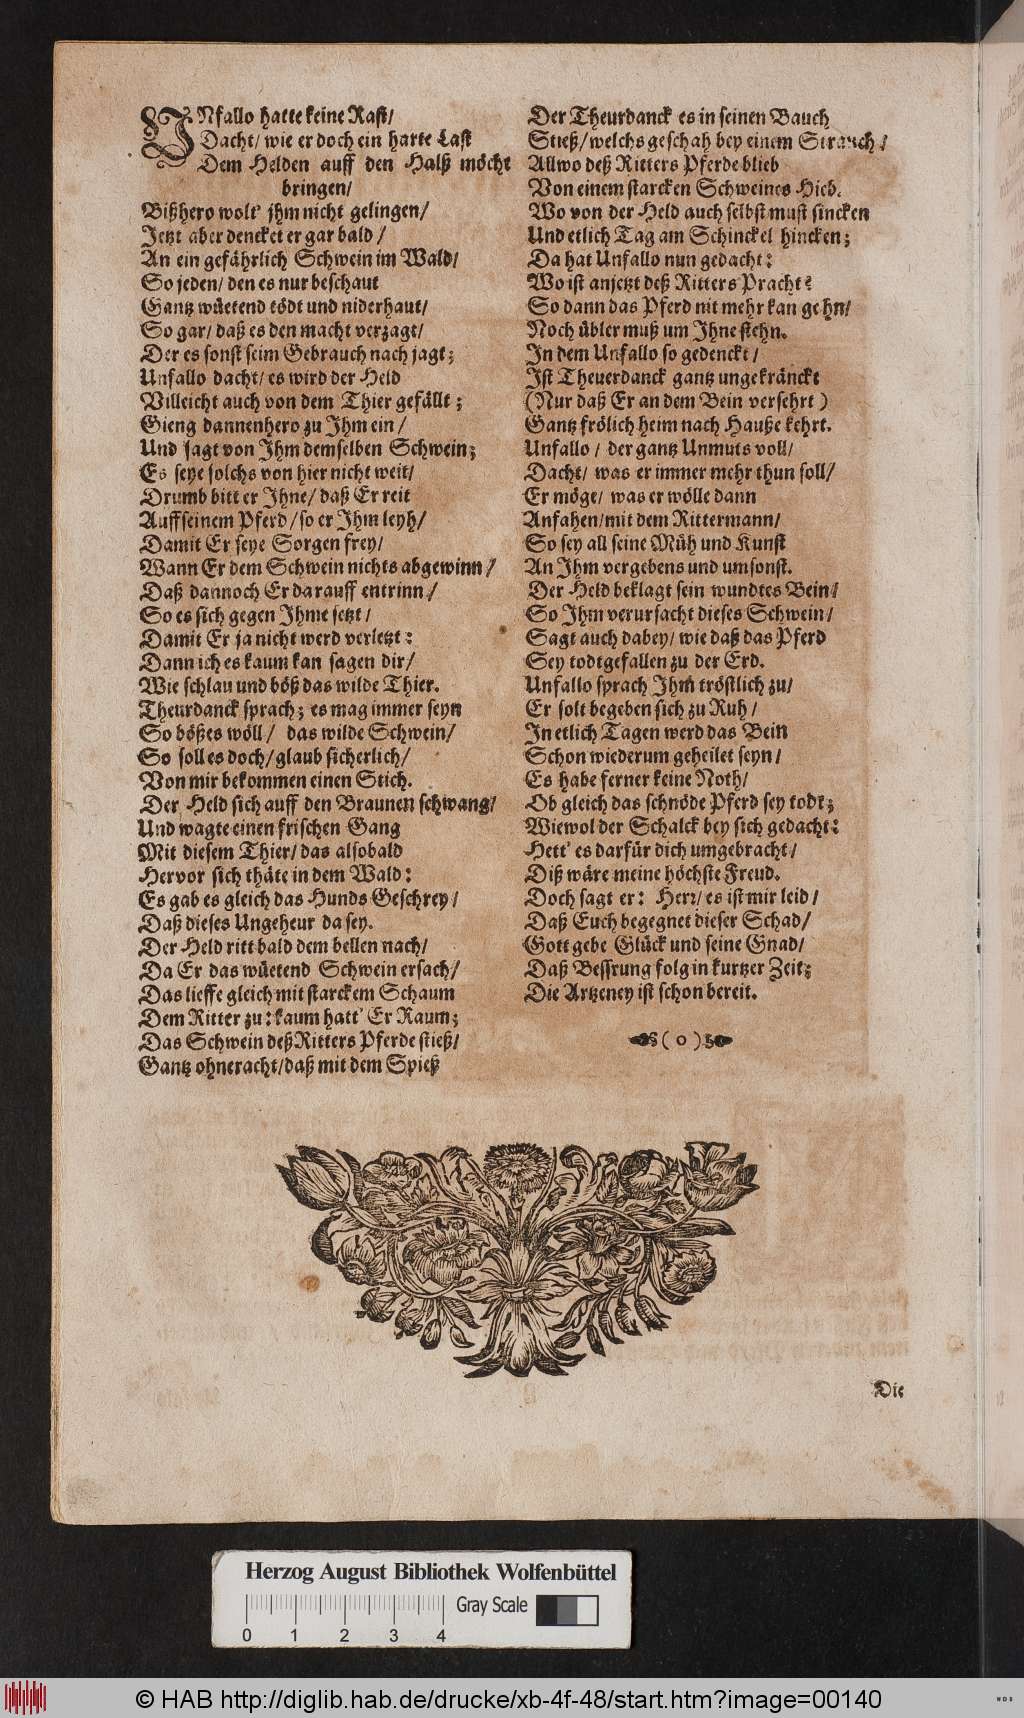 UNfallo hatte keine Rast/
Dacht/ wie er doch ein harte Last
Dem Helden auff den Halß möcht
bringen/
Bißhero wolt' jhm nicht gelingen/
Jetzt aber dencket er gar bald/
An ein gefährlich Schwein im Wald/
So jeden/ den es nur beschaut
Gantz wüetend tödt und niderhaut/
So gar/ daß es den macht verzagt/
Der es sonst seim Gebrauch nach jagt;
Unfallo dacht/ es wird der Held
Villeicht auch von dem Thier gefällt;
Gieng dannenhero zu Ihm ein/
Und sagt von Ihm demselben Schwein;
Es seye solchs von hier nicht weit/
Drumb bitt er Ihne/ daß Er reit
Auff seinem Pferd/ so er Ihm leyh/
Damit Er seye Sorgen frey/
Wann Er dem Schwein nichts abgewinn/
Daß dannoch Er darauff entrinn/
So es sich gegen Ihme setzt/
Damit Er ja nicht werd verletzt:
Dann ich es kaum kan sagen dir/
Wie schlau und böß das wilde Thier.
Theurdanck sprach; es mag immer seyn
So bößes wöll/ das wilde Schwein/
So soll es doch/ glaub sicherlich/
Von mir bekommen einen Stich.
Der Held sich auff den Braunen schwang/
Und wagte einen frischen Gang
Mit diesem Thier/ das alsobald
Hervor sich thäte in dem Wald:
Es gab es gleich das Hunds Geschrey/
Daß dieses Ungeheur da sey.
Der Held ritt bald dem bellen nach/
Da Er das wüetend Schwein ersach/
Das lieffe gleich mit starckem Schaum
Dem Ritter zu: kaum hatt' Er Raum;
Das Schwein deß Ritters Pferde stieß/
Gantz ohneracht/ daß mit dem Spieß
Der Theurdanck es in seinen Bauch
Stieß/ welchs geschah bey einem Strauch/
Allwo deß Ritters Pferde blieb
Von einem starcken Schweines Hieb.
Wo von der Held auch selbst must sincken
Und etlich Tag am Schinckel hincken;
Da hat Unfallo nun gedacht:
Wo ist anjetzt deß Ritters Pracht?
So dann das Pferd nit mehr kan gehn/
Noch übler muß um Ihne stehn.
In dem Unfallo so gedenckt/
Ist Theuerdanck gantz ungekränckt
(Nur daß Er an dem Bein versehrt)
Gantz frölich heim nach Hauße kehrt.
Unfallo/ der gantz Unmuts voll/
Dacht/ was er immer mehr thun soll/
Er möge/ was er wölle dann
Anfahen/ mit dem Rittermann/
So sey all seine Müh und Kunst
An Ihm vergebens und umsonst.
Der Held beklagt sein wundtes Bein/
So Ihm verursacht dieses Schwein/
Sagt auch dabey/ wie daß das Pferd
Sey todtgefallen zu der Erd.
Unfallo sprach Ihm tröstlich zu/
Er solt begeben sich zu Ruh/
In etlich Tagen werd das Bein
Schon wiederum geheilet seyn/
Es habe ferner keine Noth/
Ob gleich das schnöde Pferd sey todt;
Wiewol der Schalck bey sich gedacht:
Hett' es darfür dich umgebracht/
Diß wäre meine höchste Freud.
Doch sagt er: Herr/ es ist mir leid/
Daß Euch begegnet dieser Schad/
Gott gebe Glück und seine Gnad/
Daß Bessrung folg in kurtzer Zeit;
Die Artzeney ist schon bereit.
( o )
Die
Herzog August Bibliothek Wolfenbüttel
Gray Scale
0 1 2 3 4
© HAB http://diglib.hab.de/drucke/xb-4f-48/start.htm?image=00140